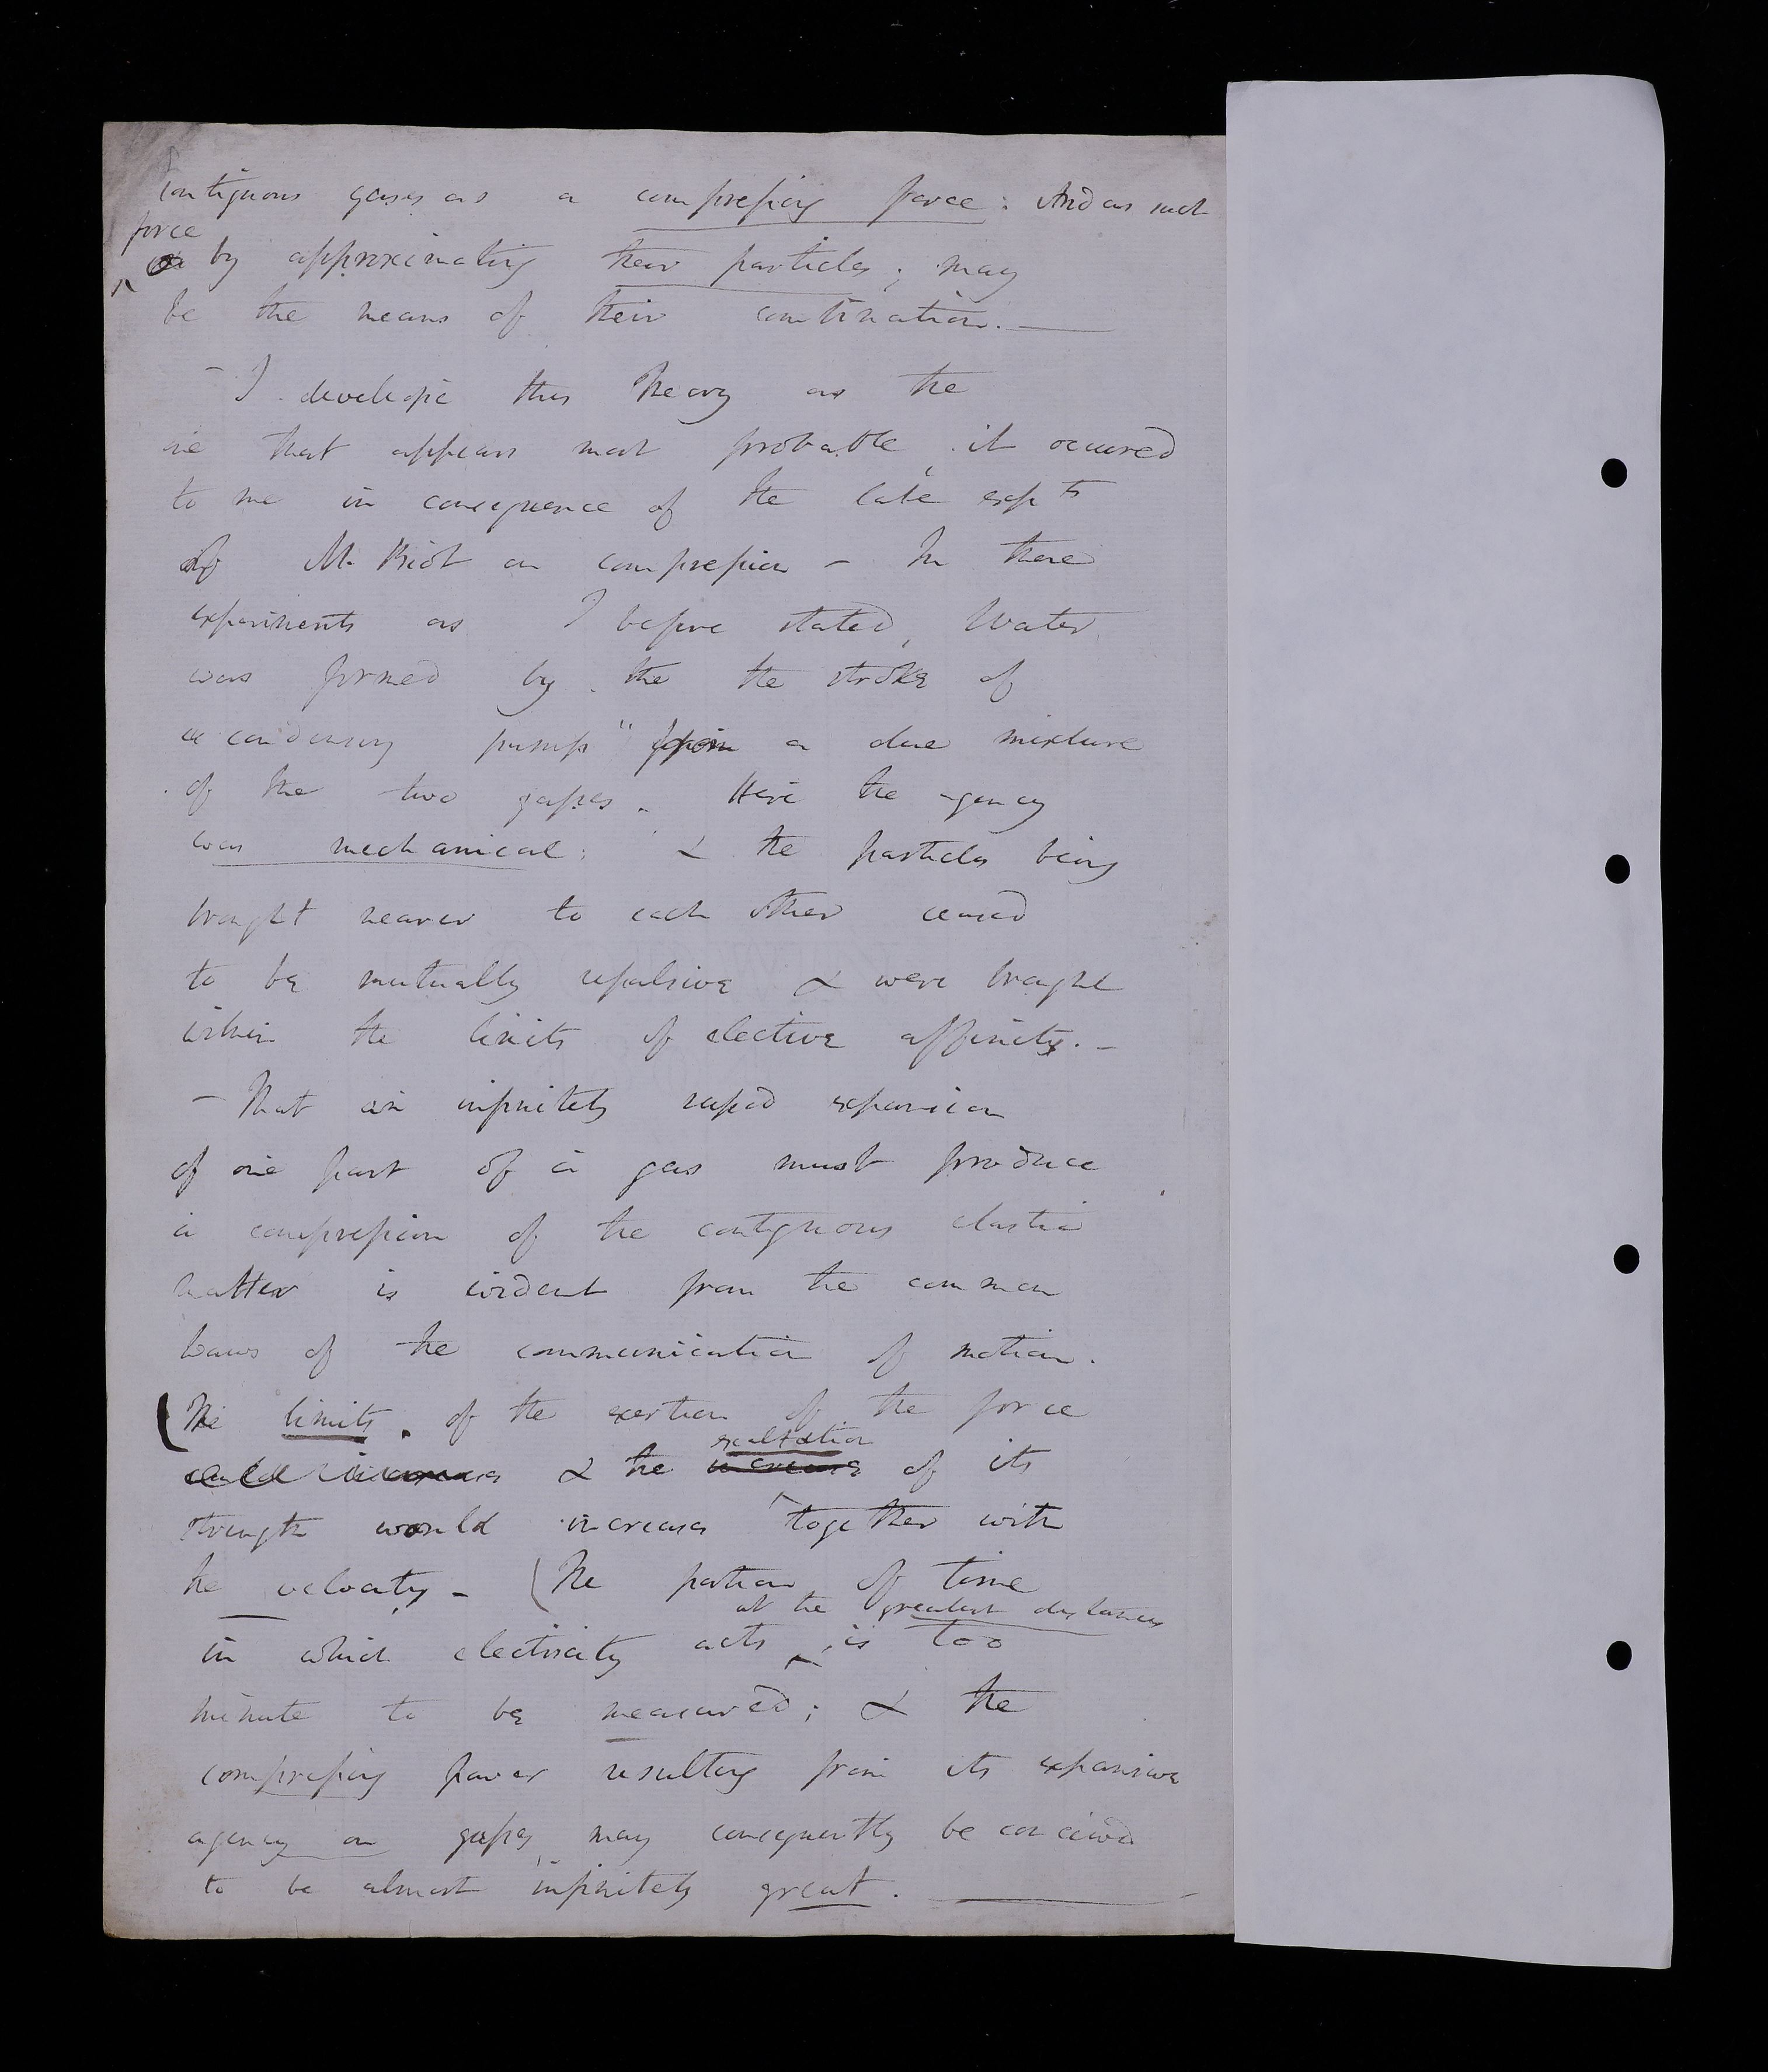 contiguous gases as a compressing force: And as such
force
by approximating their particles; may
be the means of their combination. —
– I develope this Theory as the
one that appears most probable, it occured
to me in consequence of the late expts
of M. Biot on compression – In these
experiments as I before stated, Water
was formed by the the stroke of
a condensing pump" from a due mixture
of the two gasses. Here the agency
was mechanical; & the particles being
brought nearer to each other ceased
to be mutually repulsive & were brought
within the limits of elective affinity. –
– That an infinitely rapid expansion
of one part of a gas must produce
a compression of the contiguous elastic
matter is evident from the common
Laws of the communication of motion.
(The limits, of the exertion of the force
exaltation
could increase & the increase of its
strength would increase together with
the velocity – (The portion of time
at the greatest distances
in which electricity acts, is too
minute to be measured; & the
compressing power resulting from its expansive
agency on gasses, may consequently be conceived
to be almost infinitely great. —